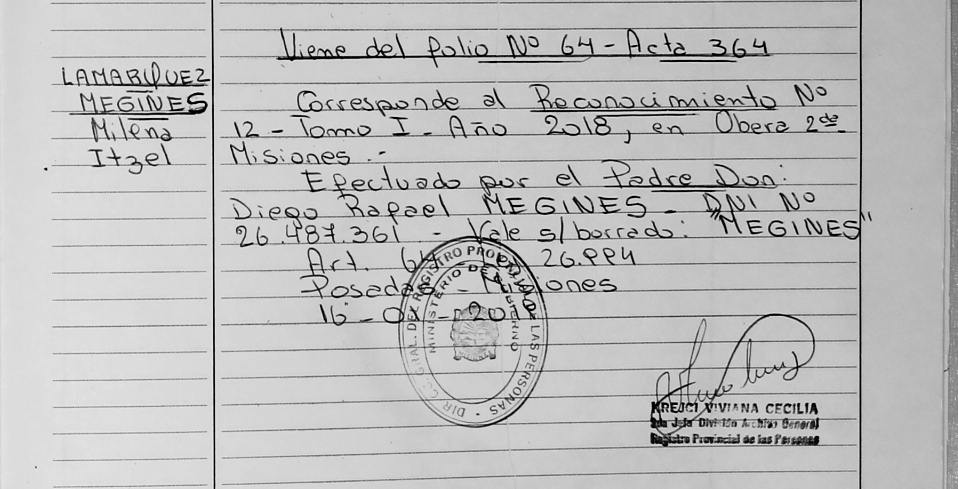 Viene del folio Nº 64 - Acta 364
LAMARQUEZ
MEGINES
Milena
Itzel
Corresponde al Reconocimiento Nº
12 - Tomo I - Año 2018, en Obera 2da
Misiones.-
Efectuado por el Padre Don:
Diego Rafael MEGINES - DNI Nº
26.487.361 - Vale s/borrado: "MEGINES"
Art. 26.994
Posadas - Misiones
16 -
DIR. GRAL. DEL REGISTRO PROVINCIAL DE LAS PERSONAS
MINISTERIO DE GOBIERNO
KREJCI VIVIANA CECILIA
2da Jefa División Archivo General
Registro Provincial de las Personas